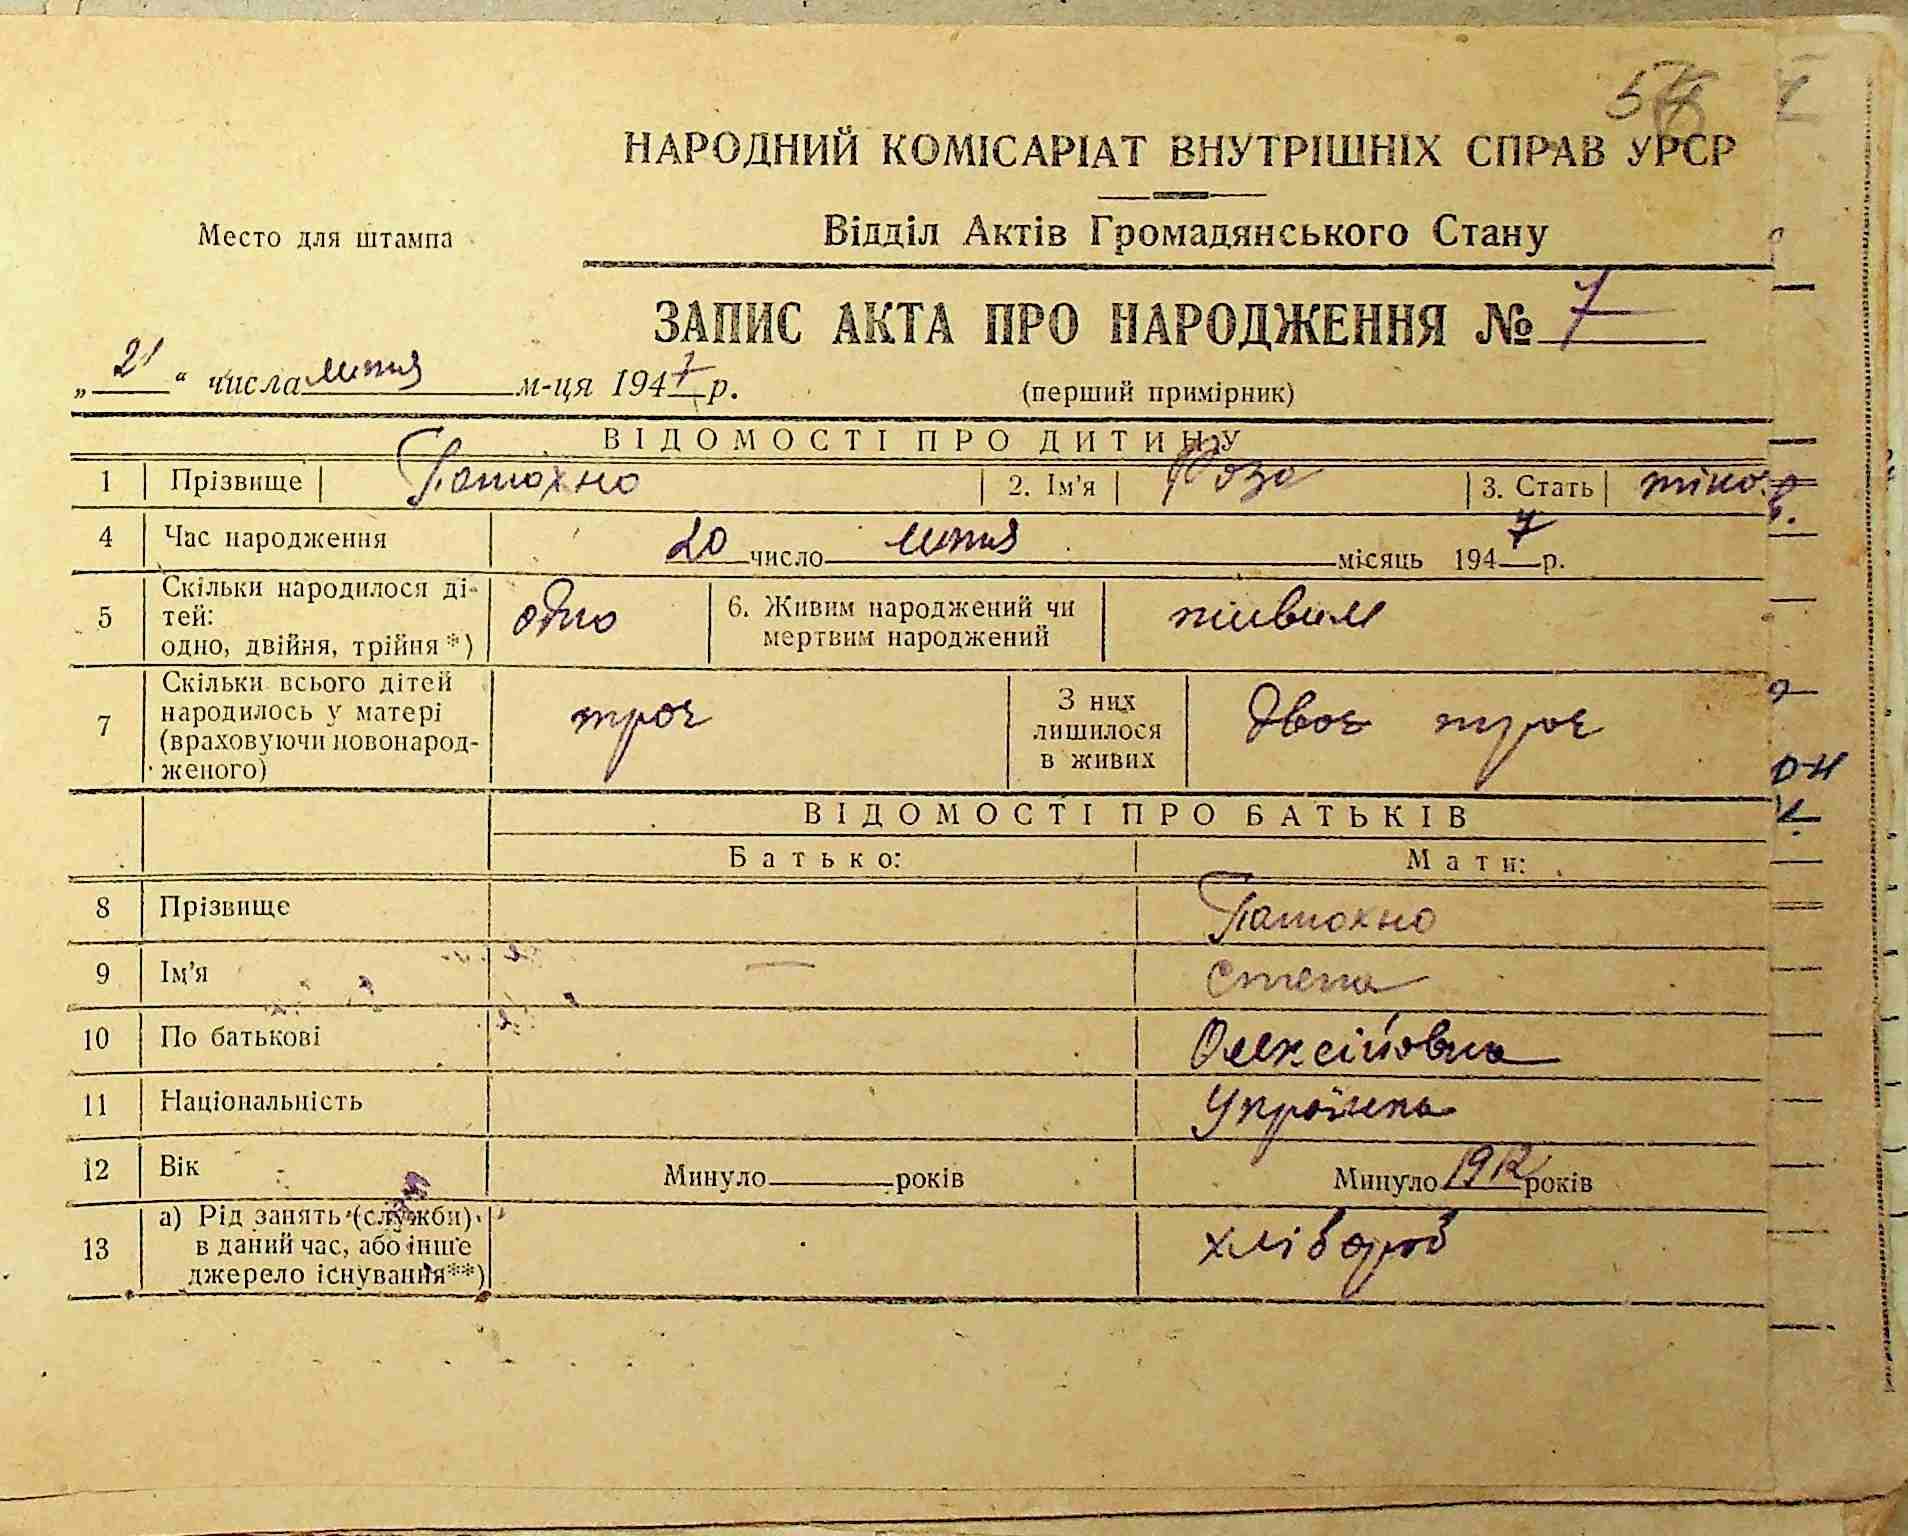 НАРОДНИЙ КОМІСАРІАТ ВНУТРІШНІХ СПРАВ УРСР
Место для штампа
Відділ Актів Громадянського Стану
ЗАПИС АКТА ПРО НАРОДЖЕННЯ № 7
„21“ числа липня м-ця 1947 р.
(перший примірник)
ВІДОМОСТІ ПРО ДИТИНУ
1 Прізвище Патохно 2. Ім'я Роза 3. Стать жіно
4 Час народження 20 число липня місяць 1947 р.
5 Скільки народилося ді-
тей:
одно, двійня, трійня*) одно
6. Живим народжений чи
мертвим народжений живим
7 Скільки всього дітей
народилось у матері
(враховуючи новонарод-
женого) троє
З них
лишилося
в живих двоє троє
ВІДОМОСТІ ПРО БАТЬКІВ
Батько: Мати:
8 Прізвище Патохно
9 Ім'я Степа
10 По батькові Олексійовна
11 Національність Українка
12 Вік Минуло років Минуло 1912 років
13 а) Рід занять (служби)
в даний час, або інше
джерело існування**) хлібороб